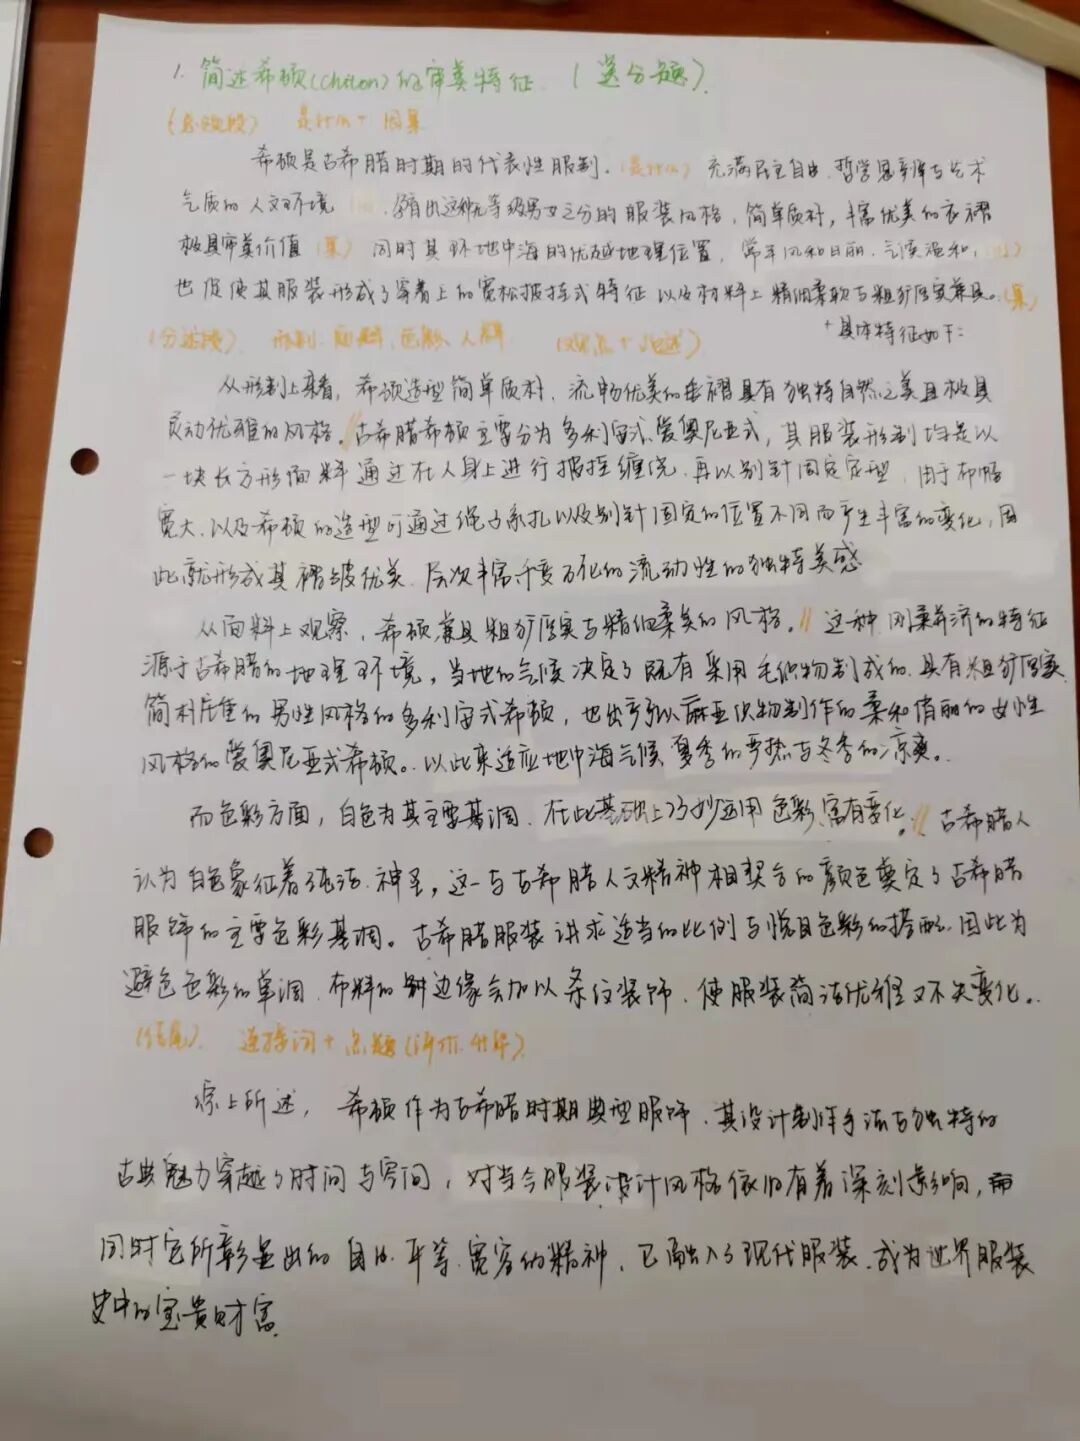 1. 简述希顿(chiton)的审美特征.（送分题）.
（总起段） 是什么+因果
希顿是古希腊时期的代表性服制.（是什么）充满民主自由.哲学思辨与艺术
气质的人文环境 孕育出这种无等级男女之分的服装风格,简单质朴,丰富优美的衣褶
极具审美价值（果）同时其环地中海的优越地理位置,常年风和日丽.气候温和,
也促使其服装形成了穿着上的宽松披挂式特征以及材料上精细柔软与粗犷厚实兼具。（果）
+具体特征如下:
（分述段） 形制.面料.色彩.人群 （观点+论述）
从形制上来看,希顿造型简单质朴.流畅优美的垂褶具有独特自然之美且极具
灵动优雅的风格。//古希腊希顿主要分为多利安式、爱奥尼亚式,其服装形制均是以
一块长方形面料通过在人身上进行披挂缠绕.再以别针固定定型.由于布幅
宽大.以及希顿的造型可通过绳子系扎以及别针固定的位置不同而产生丰富的变化,因
此就形成其褶皱优美.层次丰富千变万化的流动性的独特美感
从面料上观察,希顿兼具粗犷厚实与精细柔美的风格。//这种刚柔并济的特征
源于古希腊的地理环境,当地的气候决定了既有采用毛织物制成的.具有粗犷厚实
简朴庄重的男性风格的多利安式希顿,也出了以麻亚织物制作的柔和俏丽的女性
风格的爱奥尼亚式希顿。.以此来适应地中海气候夏季的炎热与冬季的凉爽。.
而色彩方面,白色为其主要基调.在此基础上巧妙运用色彩.富有变化。//古希腊人
认为白色象征着纯洁.神圣,这一与古希腊人文精神相契合的颜色奠定了古希腊
服饰的主要色彩基调。古希腊服装讲求适当的比例与悦目色彩的搭配.因此为
避色色彩的单调.布料的边缘会加以条纹装饰.使服装简洁优雅又不失变化。.
（结尾）. 连接词+点题
综上所述, 希顿作为古希腊时期典型服饰.其设计制作手法与独特的
古典魅力穿越了时间与空间,对当今服装设计风格依旧有着深刻影响,而
同时它所彰显出的自由.平等.宽容的精神.已融入了现代服装.成为世界服装
史中的宝贵财富.